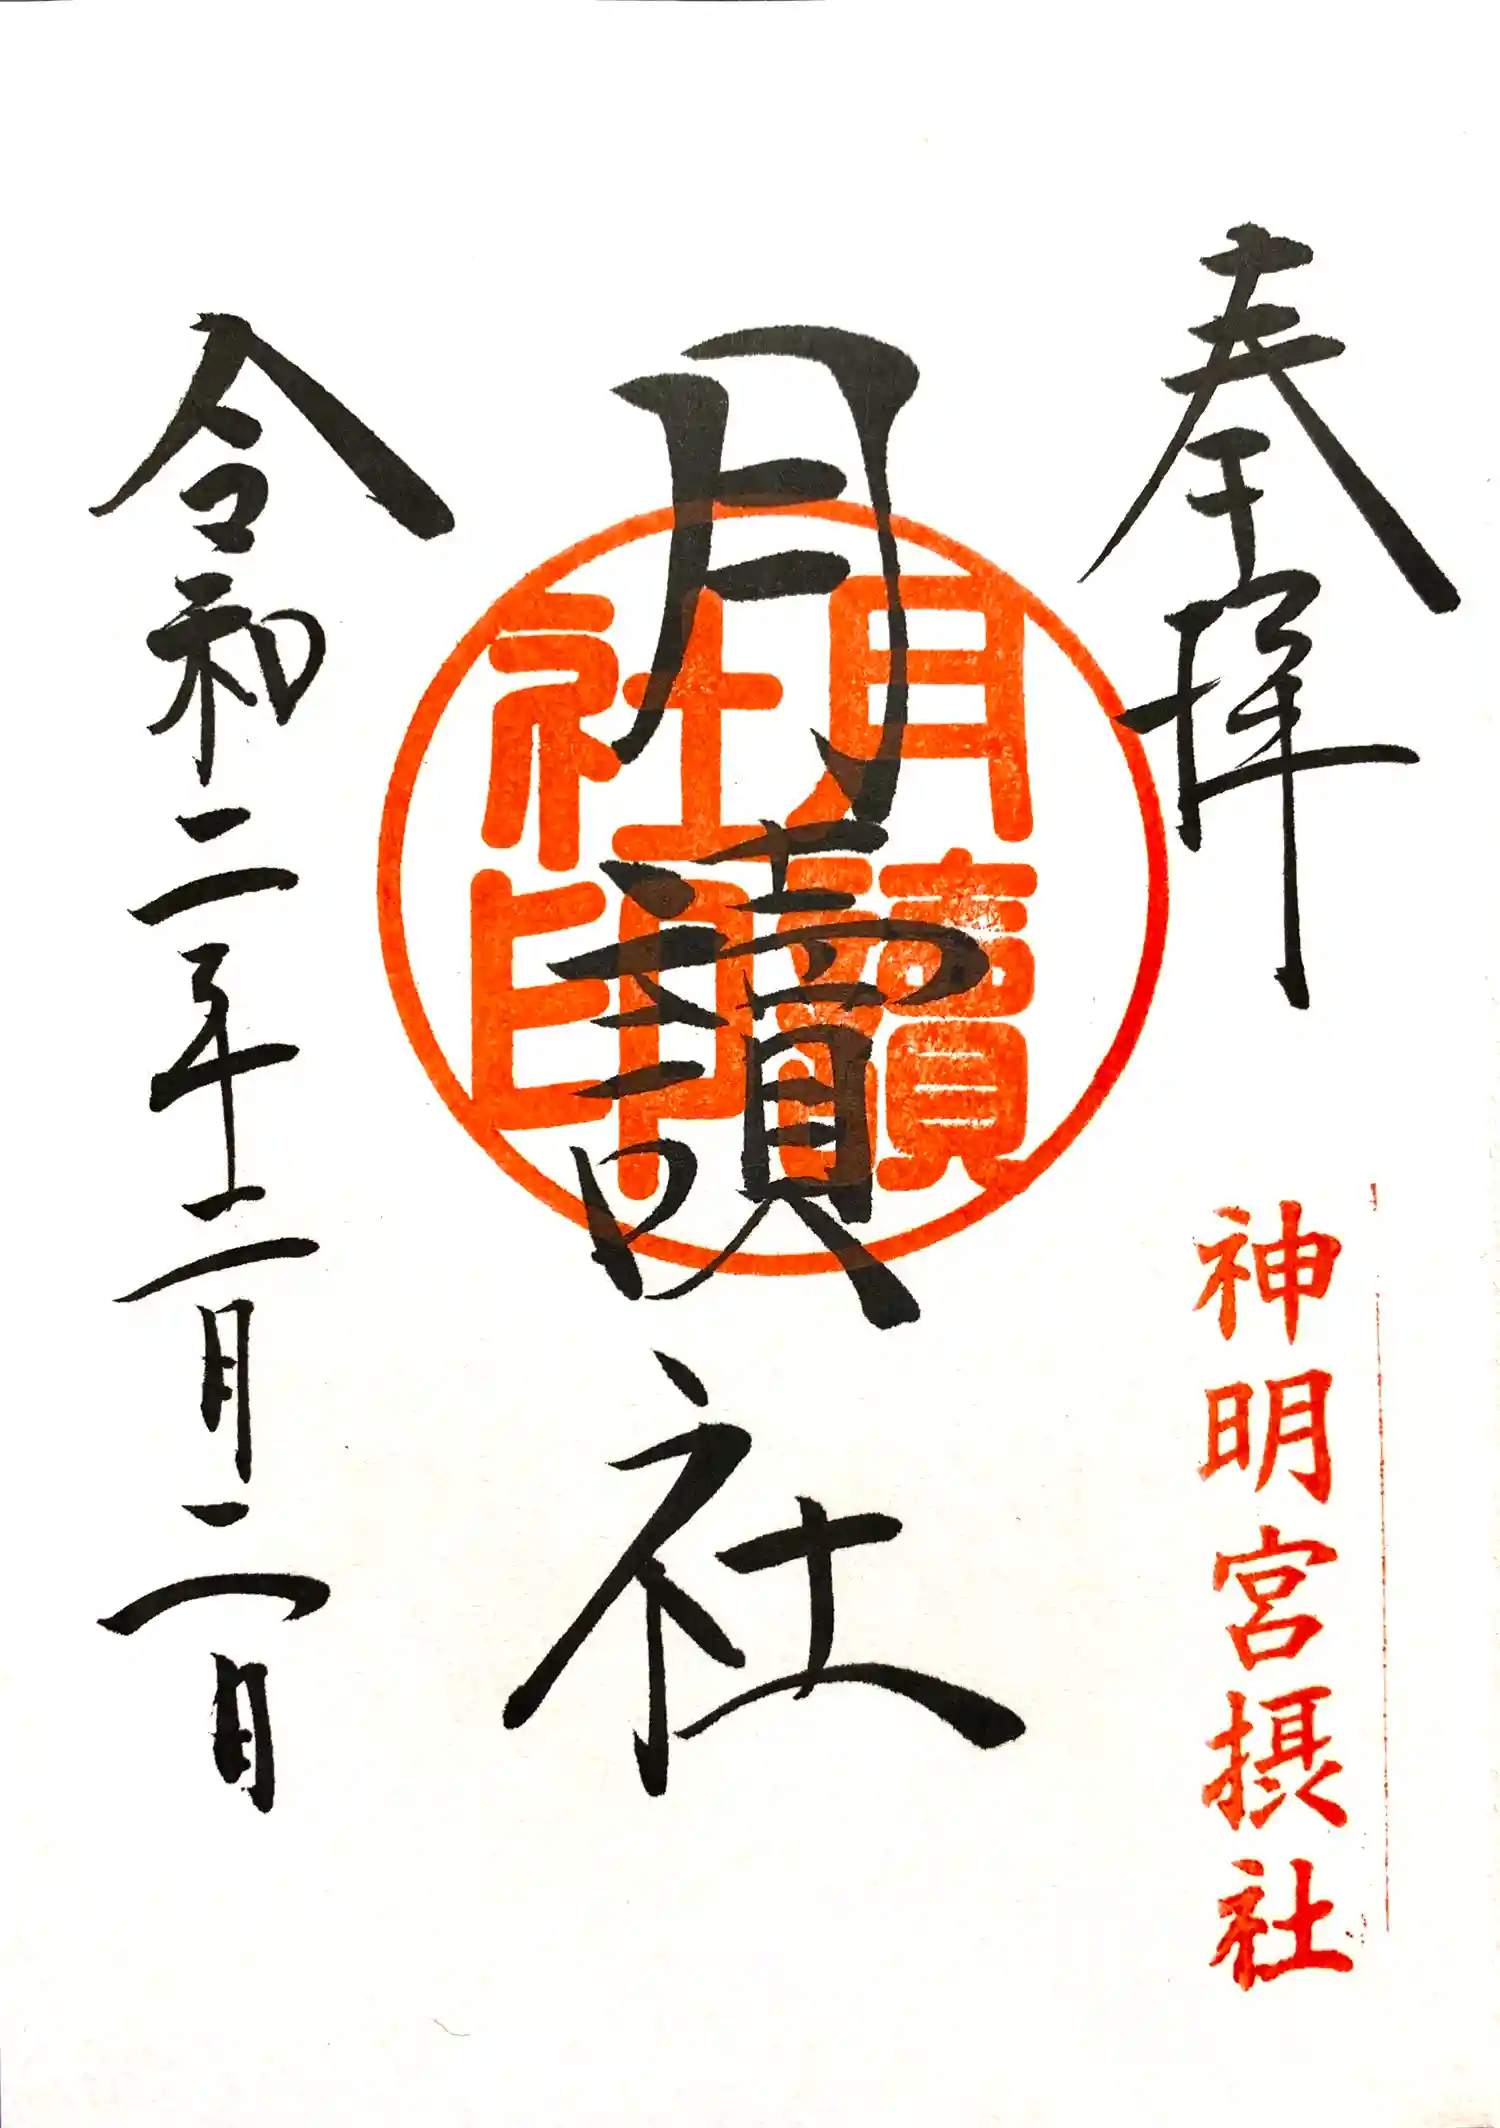 奉拝
神明宮摂社
月讀社
月讀
社印
令和二年二月二日